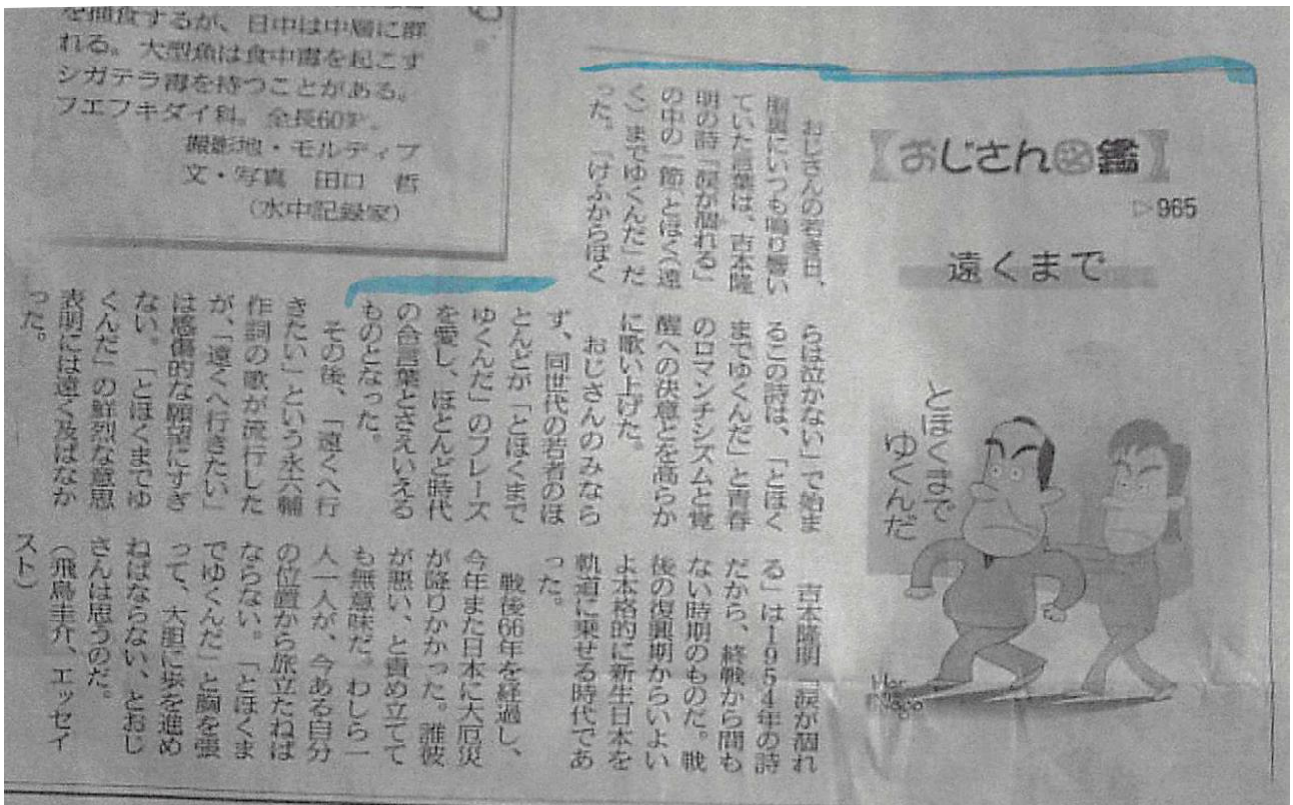 を捕食するが、日中は中層に群
れる。大型魚は食中毒を起こす
シガテラ毒を持つことがある。
フエフキダイ科。全長60㌢。
撮影地・モルディブ
文・写真 田口 哲
（水中記録家）
【おじさん図鑑】
▷965
遠くまで
とほくまで
ゆくんだ
おじさんの若き日、
胸奥にいつも鳴り響い
ていた言葉は、吉本隆
明の詩「涙が涸れる」
の中の一節「とほく（遠
く）までゆくんだ」だ
った。「けふからぼく
らは泣かない」で始ま
るこの詩は、「とほく
までゆくんだ」と青春
のロマンチシズムと覚
醒への決意とを高らか
に歌い上げた。
おじさんのみなら
ず、同世代の若者のほ
とんどが「とほくまで
ゆくんだ」のフレーズ
を愛し、ほとんど時代
の合言葉とさえいえる
ものとなった。
その後、「遠くへ行
きたい」という永六輔
作詞の歌が流行した
が、「遠くへ行きたい」
は感傷的な願望にすぎ
ない。「とほくまでゆ
くんだ」の鮮烈な意思
表明には遠く及ばなか
った。
吉本隆明「涙が涸れ
る」は1954年の詩
だから、終戦から間も
ない時期のものだ。戦
後の復興期からいよい
よ本格的に新生日本を
軌道に乗せる時代であ
った。
戦後66年を経過し、
今年また日本に大厄災
が降りかかった。誰彼
が悪い、と責め立てて
も無意味だ。わしら一
人一人が、今ある自分
の位置から旅立たねば
ならない。「とほくま
でゆくんだ」と胸を張
って、大胆に歩を進め
ねばならない、とおじ
さんは思うのだ。
（飛鳥圭介、エッセイ
スト）